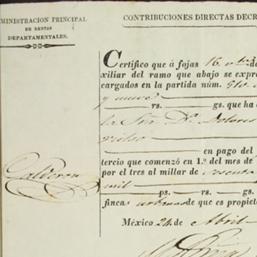 MINISTRACION PRINCIPAL
DE RENTAS
DEPARTAMENTALES.
CONTRIBUCIONES DIRECTAS DECR
Certifico que á fojas 16
xiliar del ramo que abajo se expre
cargados en la partida núm.
y nueve
rs. gs. que ha
la Sra. Da. Dolores
en pago del
tercio que comenzó en 1.º del mes de
por el tres al millar de
mil
ps. rs. gs.
finca urbana de que es propieta
México 24 de Abril
Calderon